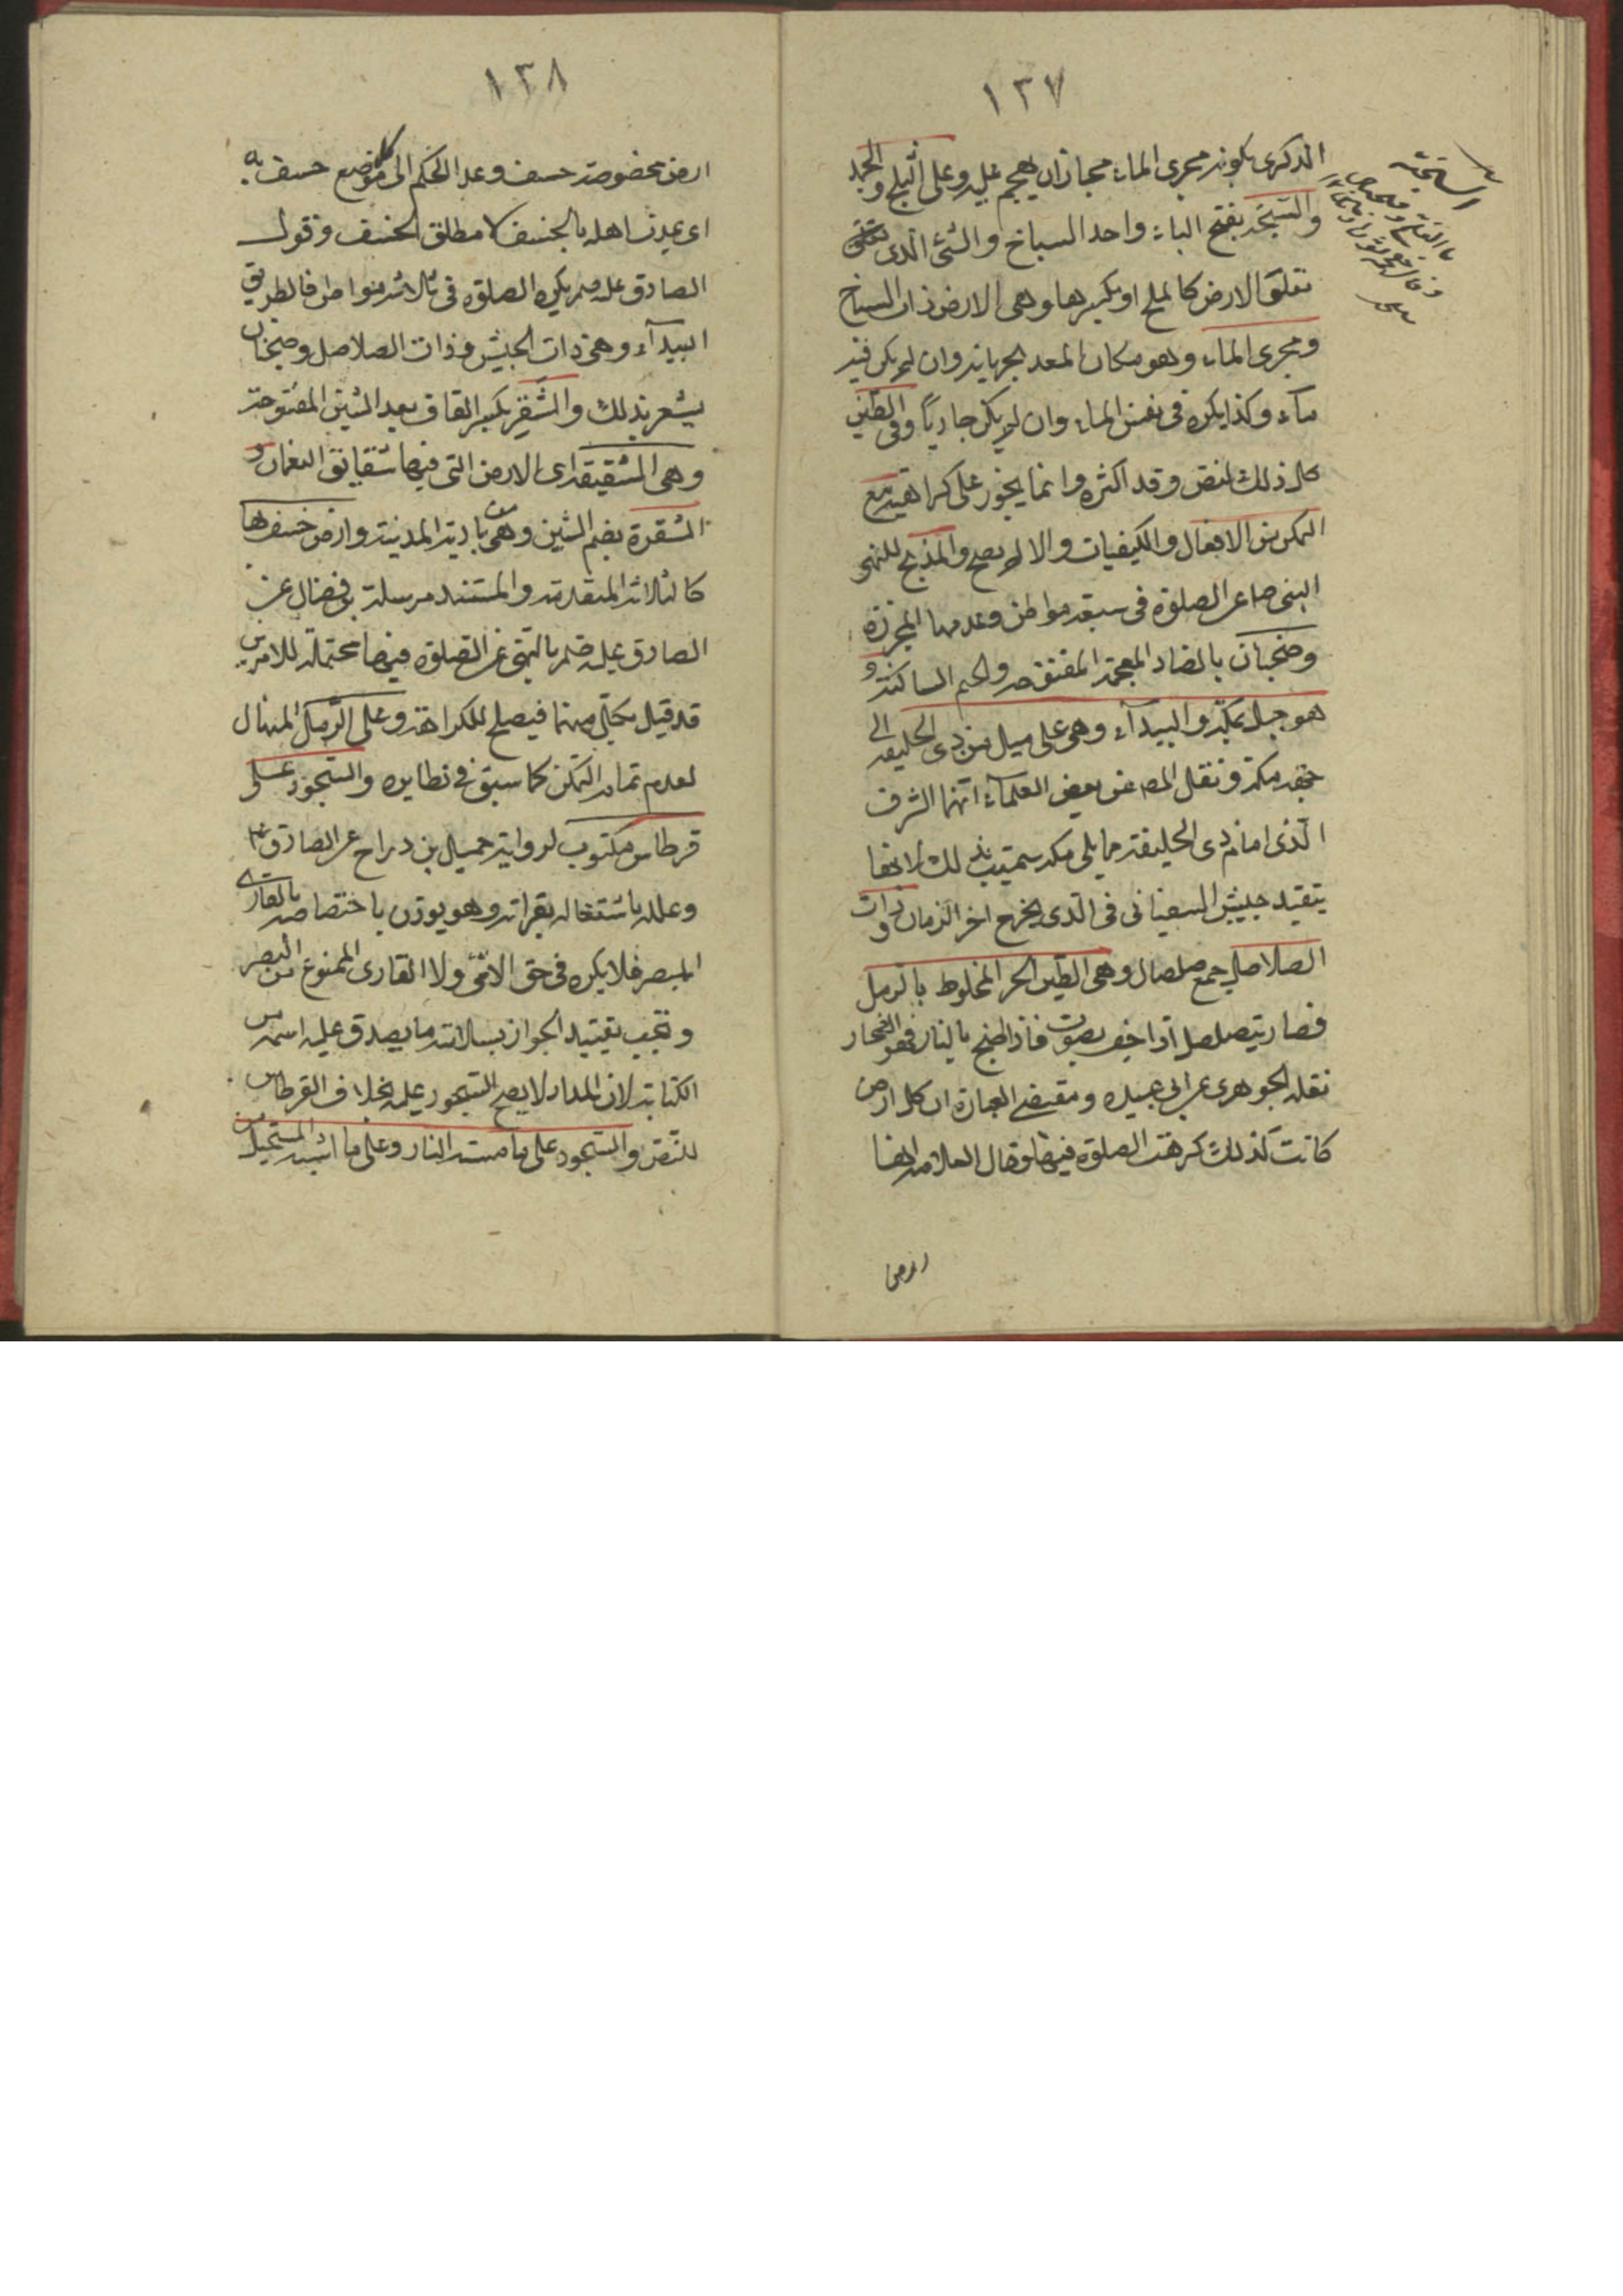 ١٣٧
الذكرى بكونه مجرى الماء مجازان يهجم عليه وعلى الثلج والجمد
والسبخة بفتح الباء واحد السباخ والشئ الذى
تعلو الارض كالملح او بكسرها وهى الارض ذات السباخ
ومجرى الماء وهو مكان المعد لجريانه وان لم يكن فيه
ماء وكذا يكره فى نفس الماء وان لم يكن جاريا وفى الطين
كل ذلك للنص وقد اكثره وانما يجوز على كراهية مع
التمكن من الافعال والكيفيات والا لم يصح والمذبح للنهى
النبى ص عن الصلوة فى سبعة مواطن وعد منها المجزرة
وضجنان بالضاد المعجمة المفتوحة والجيم الساكنة و
هو جبل بمكة والبيداء وهى على ميل من ذى الحليفة الى
جهة مكة ونقل المص عن بعض العلماء انها الشرف
الذى امام ذى الحليفة مما يلى مكة سميت بذلك لانها
جيش السفيانى فى الذى يخرج اخر الزمان وذات
الصلاصل جمع صلصال وهى الطين الحر المخلوط بالرمل
فصار يتصلصل اذا جف بصوت فاذا طبخ بالنار فهو الفخار
نقله الجوهرى عن ابى عبيده ومقتضى العبارة ان كل ارض
كانت كذلك كرهت الصلوة فيها وقال العلامة انها
ارض
١٣٨
ارض مخصوصة خسف وعدا الحكم الى كل موضع خسف به
اى عذب اهله بالخسف لا مطلق الخسف وقول
الصادق علم يكره الصلوة فى ثلاثة مواطن فالطريق
البيداء وهى ذات الجيش وذات الصلاصل وضجنان
يشعر بذلك والشقر بكسر القاف بعد الشين المفتوحة
وهى الشقيقة اى الارض التى فيها شقايق النعمان و
الشقرة بضم الشين وهى بادية المدينة وارض خسف بها
كالثلاثة المتقدمة والمستند مرسلة بن فضال عن
الصادق عليه بالنهى عن الصلوة فيها محتملة للامرين
قد قيل بكل منهما فيصلح للكراهة وعلى الرمل المنهال
لعدم تمام التمكن كما سبق فى نظايره والسجود على
قرطاس مكتوب لرواية جميل بن دراج عن الصادق
وعلله باشتغاله بقراته وهو يوذن باختصاصه بالقارى
المبصر فلا يكره فى حق الامى ولا القارى الممنوع من البصر
ويجب تقييد الجواز بسلامة ما يصدق عليه اسمه من
الكتابة لان المداد لا يصح السجود عليه بخلاف القرطاس
للنص والسجود على ما مسته النار وعلى ما اشبه المستحيل من